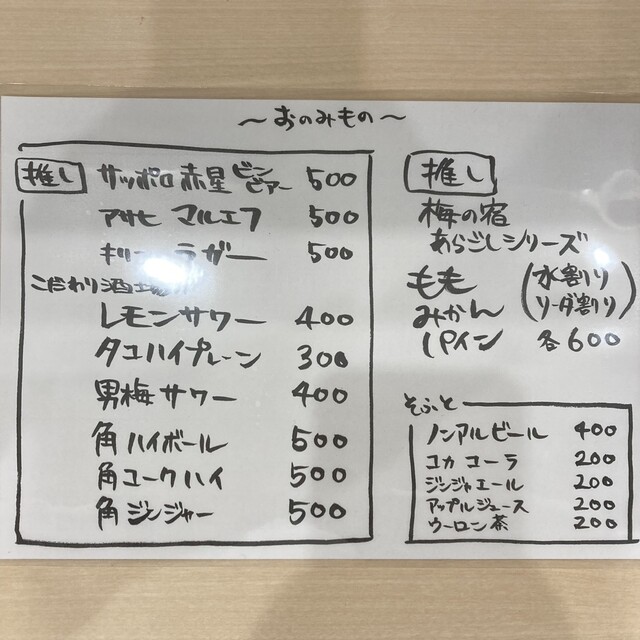 ～おのみもの～
推し サッポロ赤星 ビンビアー 500
アサヒ マルエフ 500
キリン ラガー 500
こだわり酒場の
レモンサワー 400
タコハイプレーン 300
男梅サワー 400
角ハイボール 500
角コークハイ 500
角ジンジャー 500
推し
梅の宿
あらごしシリーズ
もも (水割り
みかん ソーダ割り)
パイン 各600
そふと
ノンアルビール 400
コカコーラ 200
ジンジャエール 200
アップルジュース 200
ウーロン茶 200